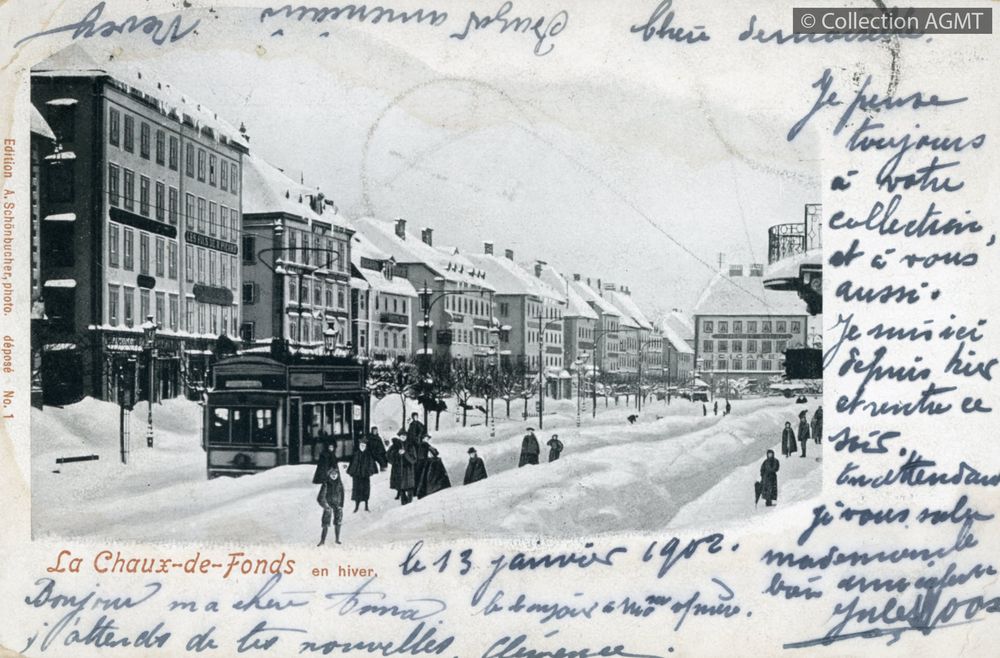 © Collection AGMT
chère demoiselle.
Je pense
toujours
à votre
collection,
et à vous
aussi.
Je suis ici
depuis hier
et rentre ce
soir.
En attendant
je vous salue
mademoiselle
bien
Jules
Edition A. Schönbucher, photo. déposé No. 1
LES FILS DE R. PICARD
La Chaux-de-Fonds en hiver.
le 13 janvier 1902.
Bonjour ma chère Anna le bonjour à
j'attends de tes nouvelles, Clémence